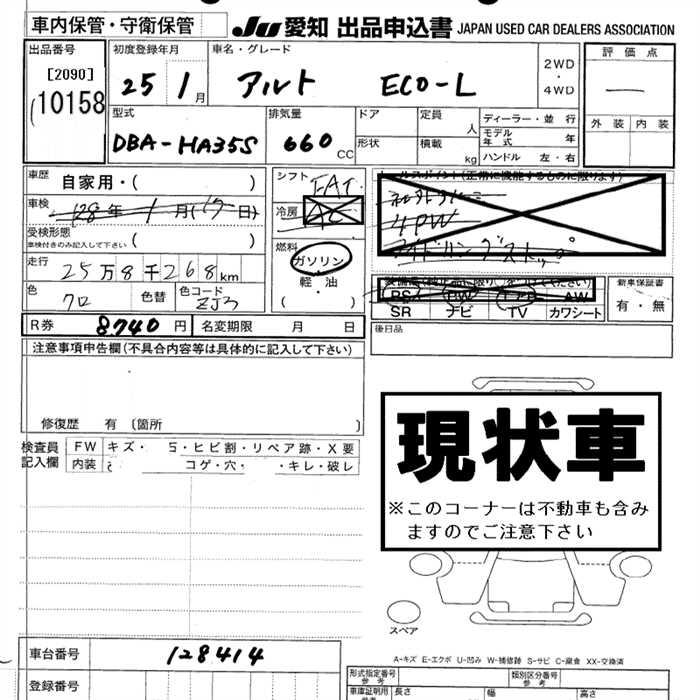 車内保管・守衛保管
JU 愛知 出品申込書 JAPAN USED CAR DEALERS ASSOCIATION
出品番号
[2090]
10158
初度登録年月
25 1月
車名・グレード
アルト ECO-L
2WD
・
4WD
評価点
外装 内装
型式
DBA-HA35S
排気量
660 CC
ドア
形状
定員 人
積載 kg
ディーラー・並行
モデル年式 年
ハンドル 左・右
車歴 自家用・( )
車検 28年 1月(19日)
受検形態
車検付きのみ記入して下さい ( )
走行 25万8千268km
色 クロ 色替 色コード ZJ3
シフト FAT
冷房 AC
燃料
ガソリン
軽油
( )
セールスポイント(正常に機能するものに限ります)
4PW
アイドリングストップ
PS PW AW
SR ナビ TV カワシート
新車保証書
有・無
後日品
R券 8740円 名変期限 月 日
注意事項申告欄(不具合内容等は具体的に記入して下さい)
修復歴 有 〔箇所 〕
検査員記入欄
FW キズ・ ・ヒビ割・リペア跡・X要
内装 コゲ・穴・ ・キレ・破レ
現状車
※このコーナーは不動車も含み
ますのでご注意下さい
スペア
A-キズ E-エクボ U-凹み W-補修跡 S-サビ C-腐食 XX-交換済
車台番号 128414
登録番号
形式指定番号
参考
類別区分番号
参考
車庫証明用
参考
長さ 幅 高さ